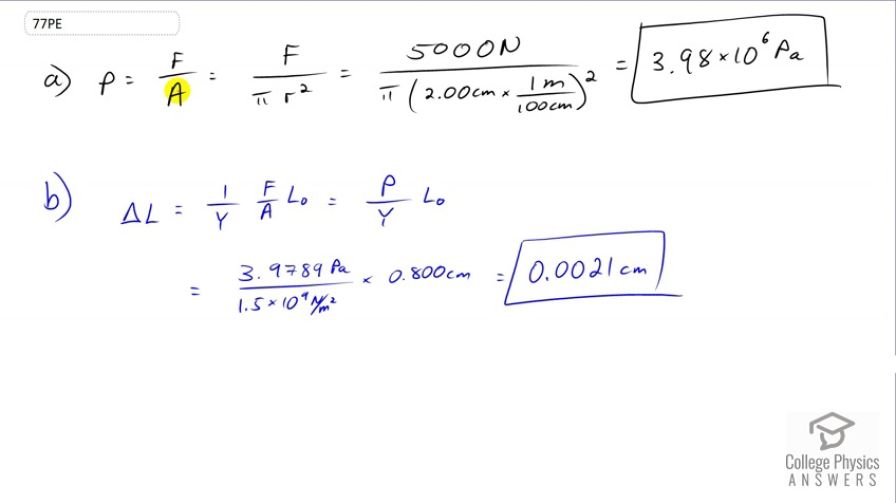 77PE
a) P = F/A = F/(π r²) = 5000N/(π (2.00cm × 1m/100cm)²) = 3.98 × 10⁶ Pa
b) ΔL = 1/Y F/A L₀ = P/Y L₀
= 3.9789 Pa/(1.5 × 10⁹ N/m²) × 0.800cm = 0.0021 cm
College Physics
ANSWERS